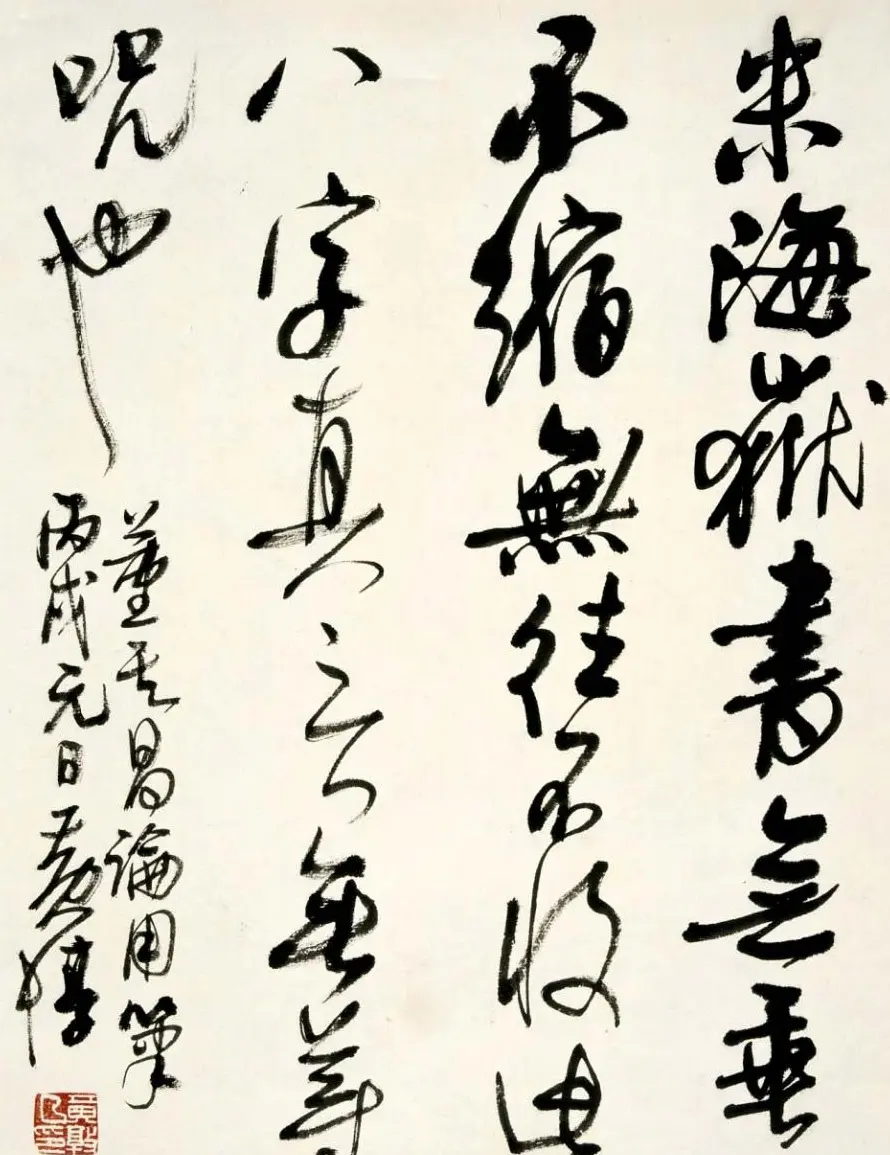 米海嶽書無垂
不縮無往不收此
八字真言無等
呪也
董其昌論用筆
丙戌元日黃惇